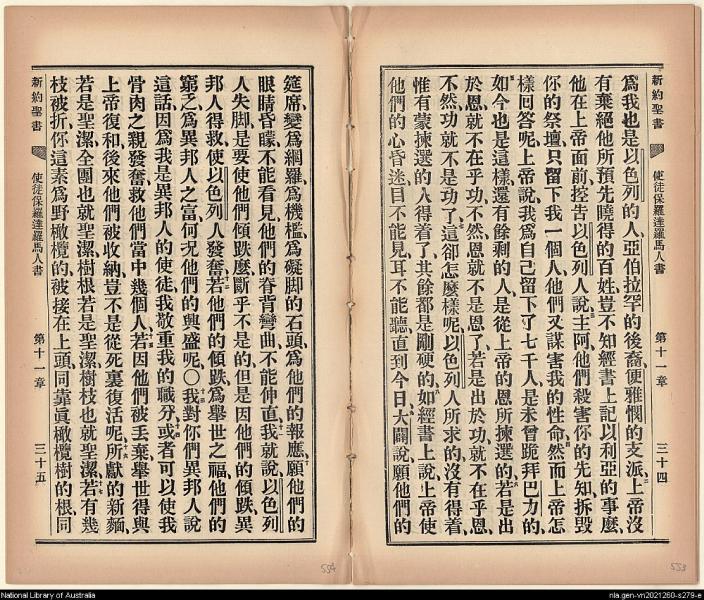 新約聖書
使徒保羅達羅馬人書
第十一章
三十四
爲我也是以色列的人、亞伯拉罕的後裔、便雅憫的支派、二上帝沒
有棄絕他所預先曉得的百姓、豈不知經書上記以利亞的事麼、
他在上帝面前、控告以色列人說、三主阿、他們殺害你的先知、拆毀
你的祭壇、只留下我一個人、他們又謀害我的性命、四然而上帝怎
樣回答呢、上帝說、我爲自己留下了七千人、是未曾跪拜巴力的、
五如今也是這樣、還有餘剩的人、是從上帝的恩所揀選的、六若是出
於恩、就不在乎功、不然恩就不是恩了、若是出於功、就不在乎恩、
不然功就不是功了、七這卻怎麼樣呢、以色列人所求的、沒有得着、
惟有蒙揀選的人得着了、其餘都是剛硬的、八如經書上說、上帝使
他們的心昏迷、目不能見、耳不能聽、直到今日、九大闢說、願他們的
筵席、變爲網羅、爲機檻、爲礙脚的石頭、爲他們的報應、十願他們的
眼睛昏矇、不能看見、他們的脊背彎曲、不能伸直、十一我就說、以色列
人失脚、是要使他們傾跌麼、斷乎不是的、但是因他們的傾跌、異
邦人得救、使以色列人發奮、十二若他們的傾跌、爲舉世之福、他們的
窮乏、爲異邦人之富、何况他們的興盛呢、〇十三我對你們異邦人說
這話、因爲我是異邦人的使徒、我敬重我的職分、十四或者可以使我
骨肉之親發奮、救他們當中幾個人、十五若因他們被丟棄、舉世得與
上帝復和、後來他們被收納、豈不是從死裏復活呢、十六所獻的新麵
若是聖潔、全團也就聖潔、樹根若是聖潔、樹枝也就聖潔、十七若有幾
枝被折、你這素爲野橄欖的、被接在上頭、同靠眞橄欖樹的根、同
新約聖書
使徒保羅達羅馬人書
第十一章
三十五
554
553
National Library of Australia
nla.gen-vn2021260-s279-e